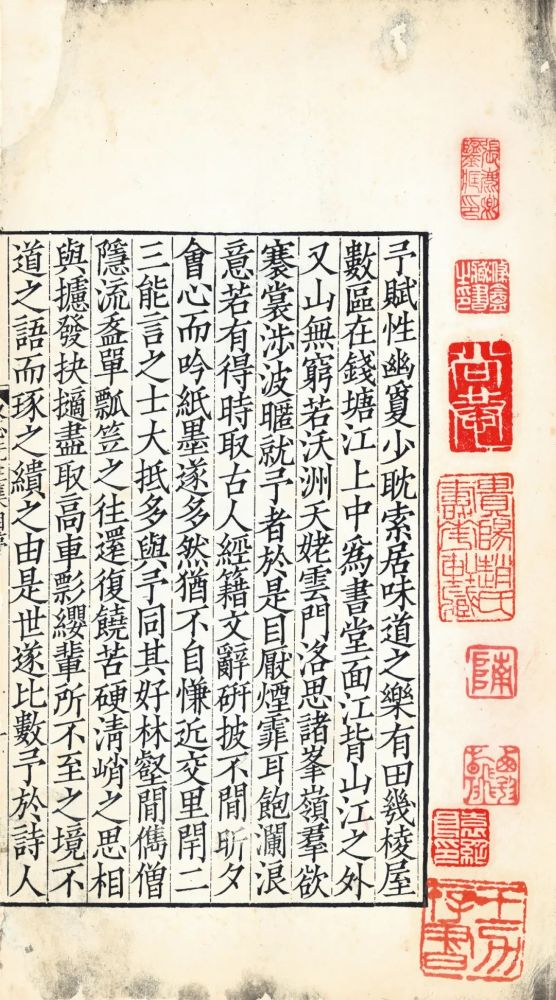 予賦性幽敻少耽索居味道之樂有田幾稜屋
數區在錢塘江上中爲書堂面江背山江之外
又山無窮若沃洲天姥雲門洛思諸峯嶺羣欲
褰裳涉波暱就予者於是目厭煙霏耳飽瀾浪
意若有得時取古人經籍文辭硏披不間昕夕
會心而吟紙墨遂多然猶不自慊近交里閈二
三能言之士大抵多與予同其好林壑間儁僧
隱流盋單瓢笠之往還復饒苦硬淸峭之思相
與攄發抉擿盡取高車彯纓輩所不至之境不
道之語而琢之繢之由是世遂比數予於詩人
貴陽趙氏